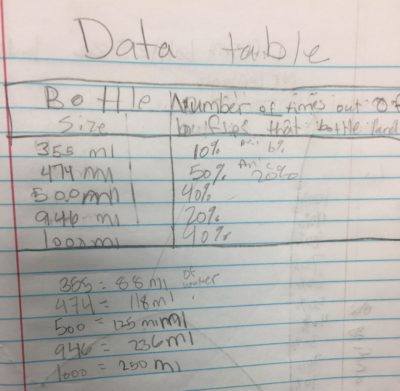 Data table
Bottle Number of times out of
Size flips that bottle land
355 ml 10% 6%
474 ml 50% 20%
500 ml 40%
946 ml 20%
1000 ml 40%
355 = 88 ml of water
474 = 118 ml
500 = 125 ml
946 = 236 ml
1000 = 250 ml